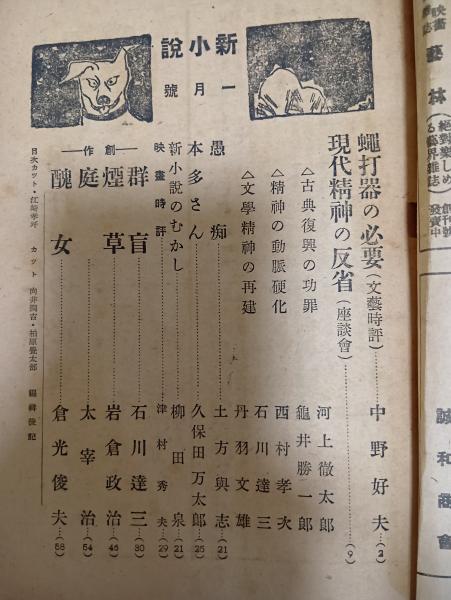 新小說
一月號
蠅打器の必要(文藝時評)……中野好夫…(2)
現代精神の反省(座談會)……(9)
△古典復興の功罪
△精神の動脈硬化
△文學精神の再建
河上徹太郎
龜井勝一郎
西村孝次
石川達三
丹羽文雄
愚痴……土方與志…(21)
本多さん……久保田万太郎…(25)
新小説のむかし……柳田泉…(21)
映畫時評……津村秀夫…(29)
―創作―
群盲……石川達三…(30)
煙草……岩倉政治…(45)
庭……太宰治…(54)
醜女……倉光俊夫…(58)
目次カット・江崎孝坪 カット 向井潤吉・柏原覺太郎 編輯後記
藝林
絕對樂しめる藝界雜誌
創刊號發賣中
誠和商會